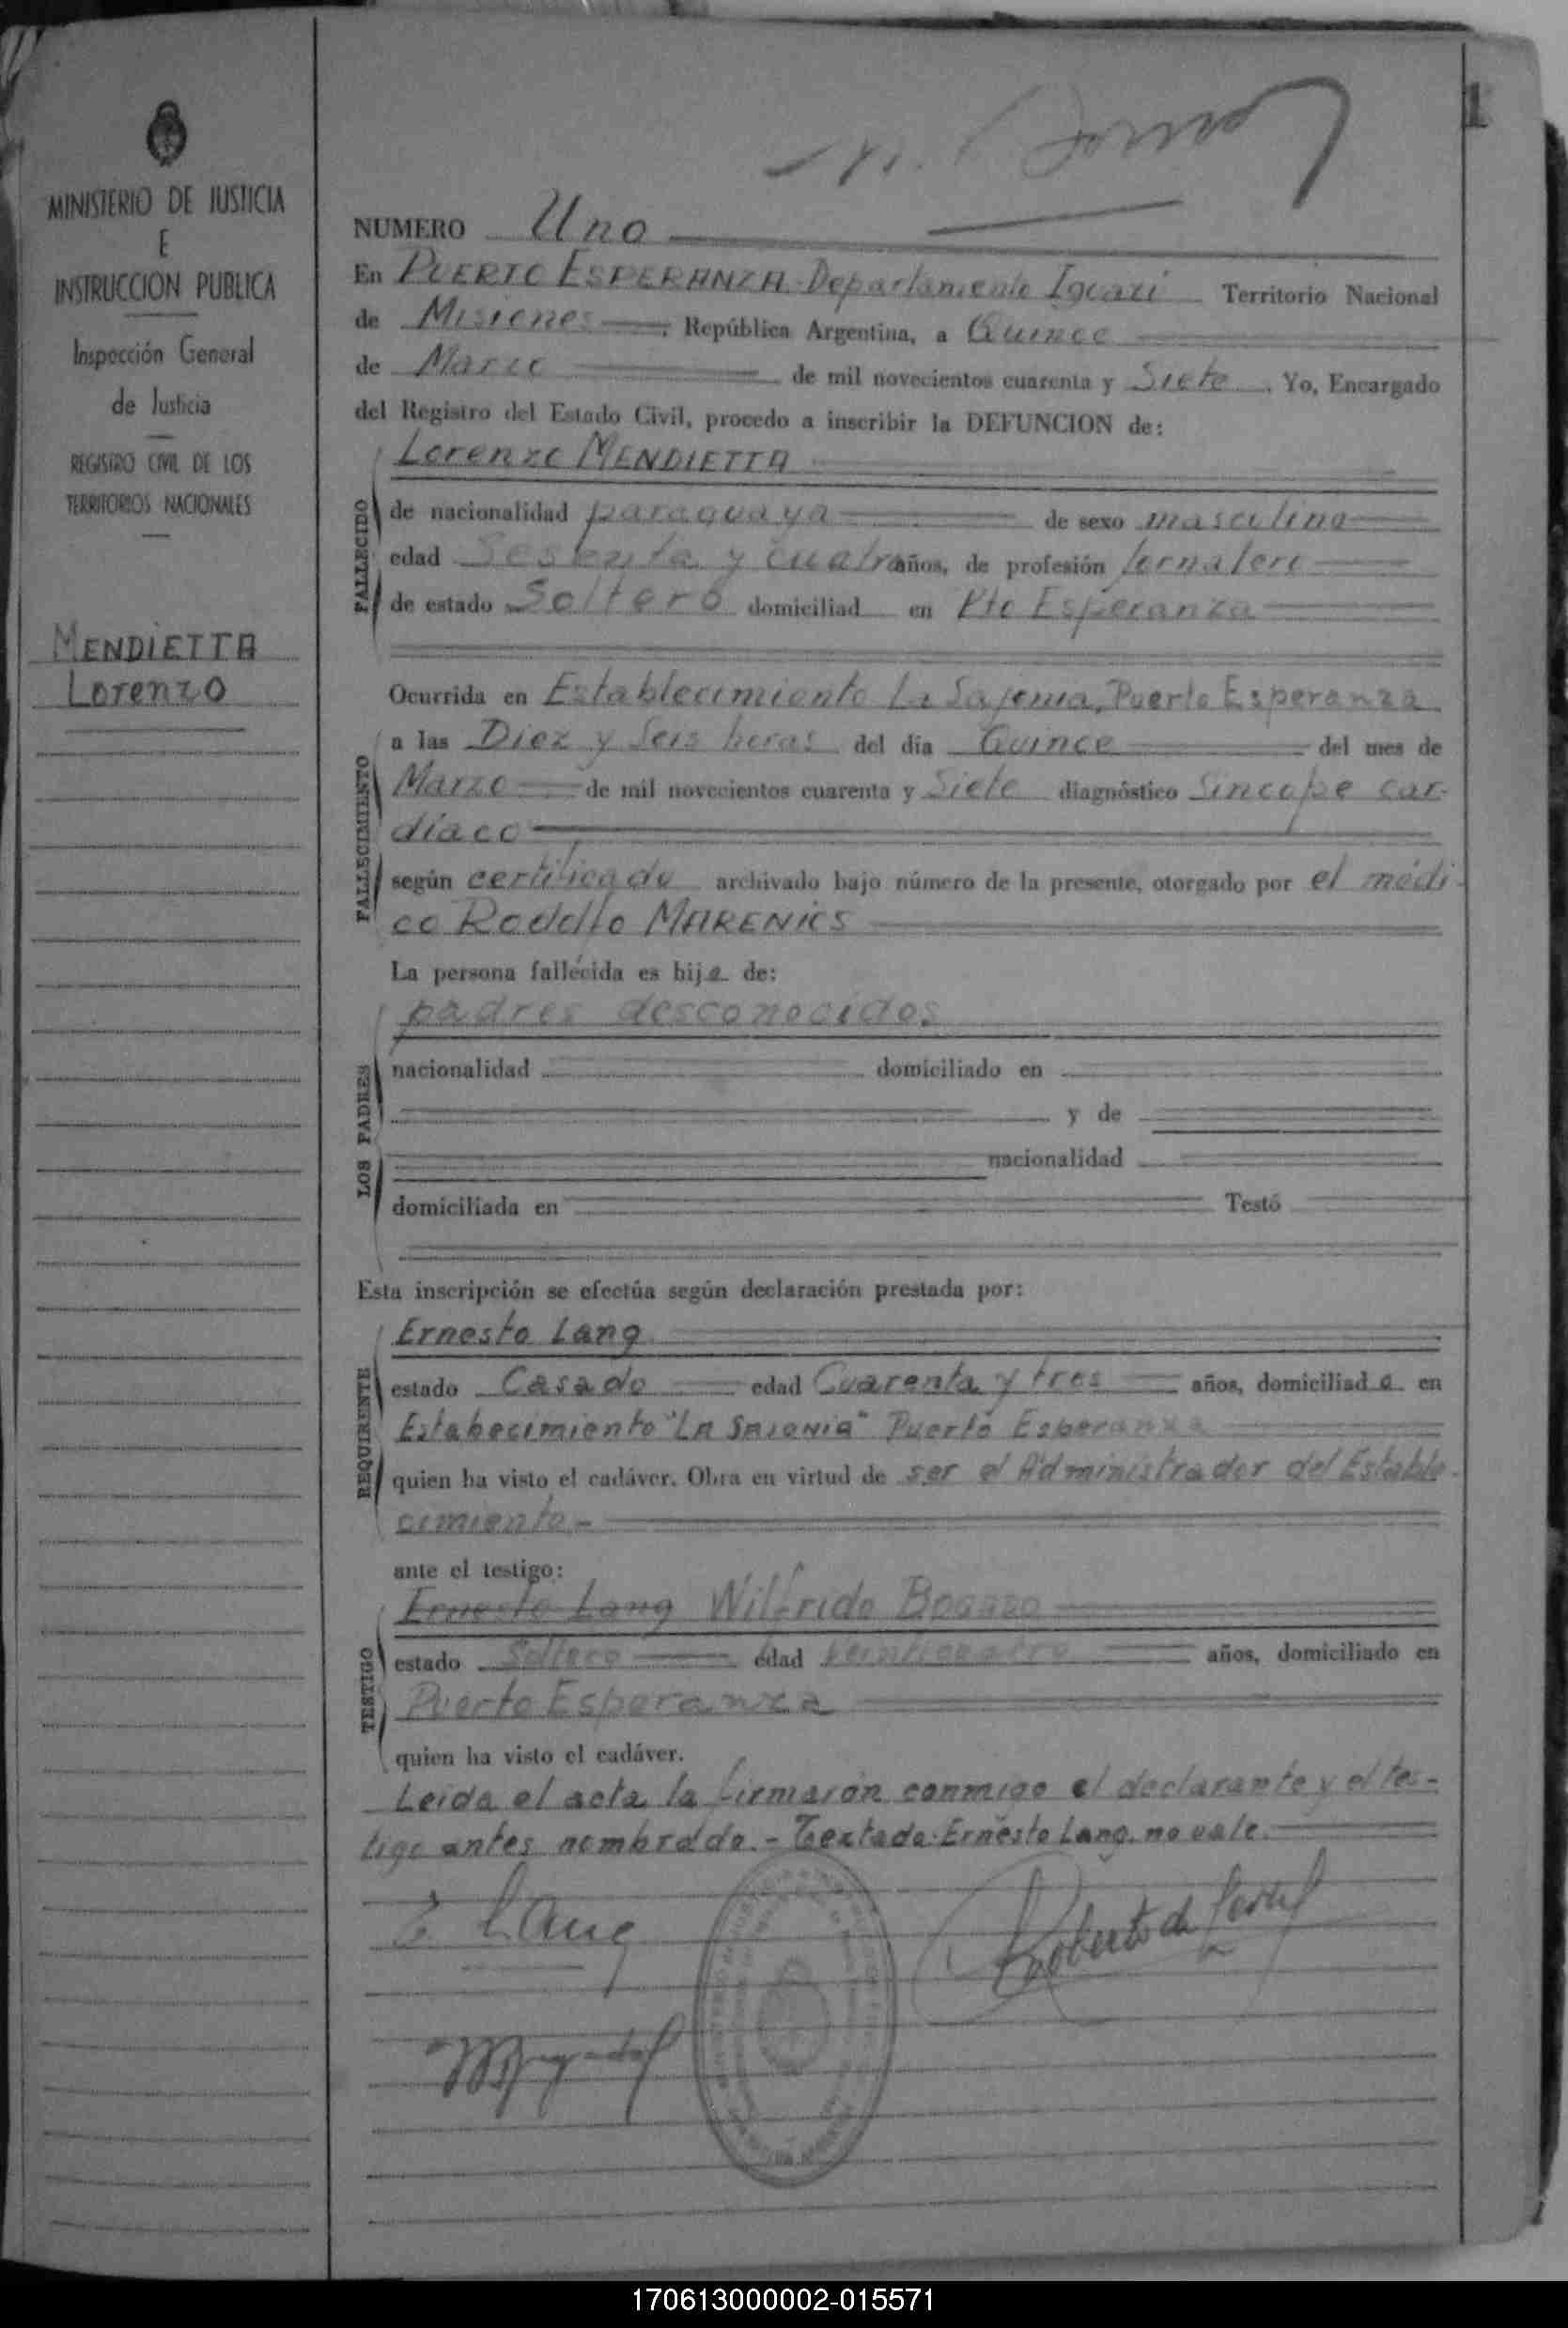 1
MINISTERIO DE JUSTICIA
E
INSTRUCCION PUBLICA
Inspección General
de Justicia
REGISTRO CIVIL DE LOS
TERRITORIOS NACIONALES
MENDIETTA
Lorenzo
NUMERO Uno
En PUERTO ESPERANZA-Departamento Iguazú Territorio Nacional
de Misiones, República Argentina, a Quince
de Marzo de mil novecientos cuarenta y Siete. Yo, Encargado
del Registro del Estado Civil, procedo a inscribir la DEFUNCION de:
Lorenzo MENDIETTA
FALLECIDO
de nacionalidad paraguaya de sexo masculino
edad Sesenta y cuatro años, de profesión Jornalero
de estado Soltero domiciliad en Pto Esperanza
Ocurrida en Establecimiento La Sajonia, Puerto Esperanza
FALLECIMIENTO
a las Diez y Seis horas del día Quince del mes de
Marzo de mil novecientos cuarenta y Siete diagnóstico Sincope car-
diaco
según certificado archivado bajo número de la presente, otorgado por el médi-
co Rodolfo MARENICS
La persona fallecida es hijo de:
LOS PADRES
padres desconocidos
nacionalidad domiciliado en
y de
nacionalidad
domiciliada en Testó
Esta inscripción se efectúa según declaración prestada por:
REQUIRENTE
Ernesto Lang
estado Casado edad Cuarenta y tres años, domiciliado en
Estabecimiento "LA SAJONIA" Puerto Esperanza
quien ha visto el cadáver. Obra en virtud de ser el Administrador del Estable-
cimiento-
ante el testigo:
TESTIGO
Ernesto Lang Wilfrido
estado Soltero edad veinticuatro años, domiciliado en
Puerto Esperanza
quien ha visto el cadáver.
Leida el acta la firmarón conmigo el declarante y el tes-
tigo antes nombrado.- Textado: Ernesto Lang. no vale.
E. Lang
Roberto de
170613000002-015571